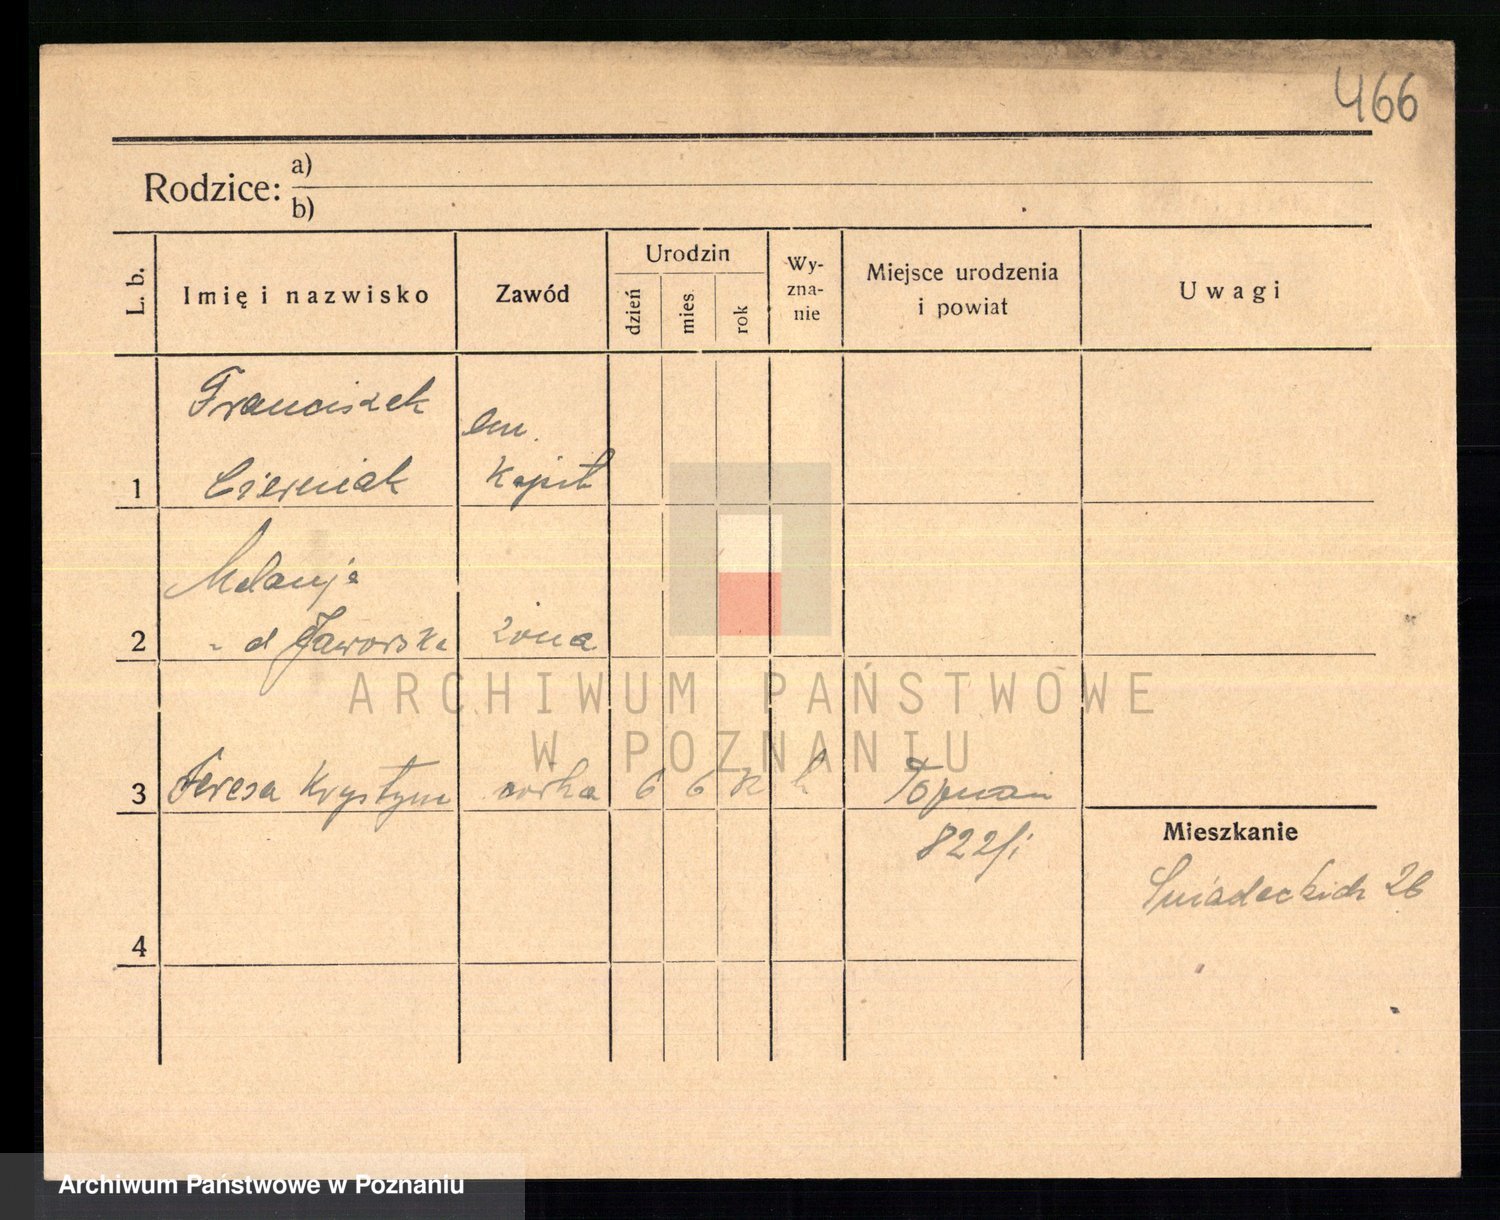 466
Rodzice: a)
b)
L. b.
Imię i nazwisko
Zawód
Urodzin
dzień
mies
rok
Wy-
zna-
nie
Miejsce urodzenia
i powiat
Uwagi
Franciszek
em.
1 Czerniak kapit
Melanja
2 " d Jaworska żona
ARCHIWUM PAŃSTWOWE
W POZNANIU
3 Teresa Krystyna córka 6 6
Poznań
822/i
Mieszkanie
Śniadeckich 26
4
Archiwum Państwowe w Poznaniu